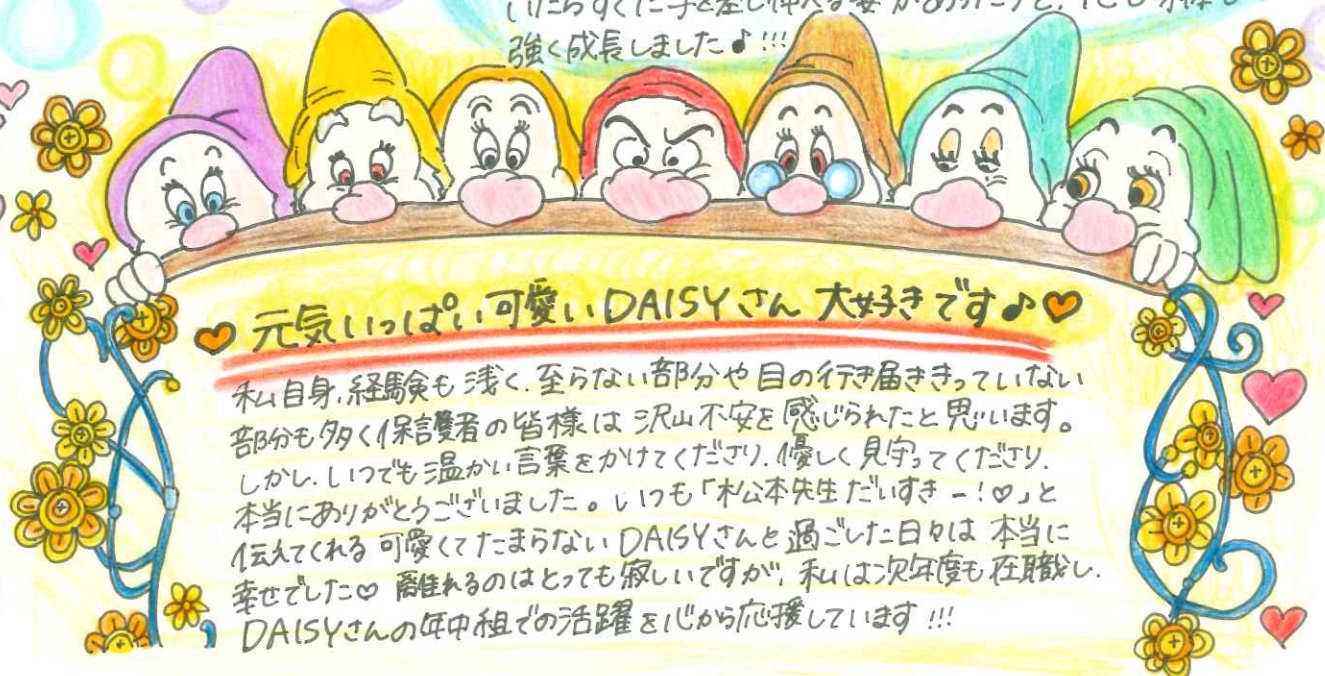 いたらすぐに手を差し伸べる姿があったりと、
強く成長しました♪!!!
♥ 元気いっぱい可愛いDAISYさん 大好きです♪♥
私自身、経験も浅く、至らない部分や目の行き届ききっていない
部分も多く保護者の皆様は沢山不安を感じられたと思います。
しかし、いつでも温かい言葉をかけてくださり、優しく見守ってくださり、
本当にありがとうございました。いつも「松本先生だいすきー!♡」と
伝えてくれる可愛くてたまらないDAISYさんと過ごした日々は本当に
幸せでした♡ 離れるのはとっても寂しいですが、私は次年度も在職し、
DAISYさんの年中組での活躍を心から応援しています!!!